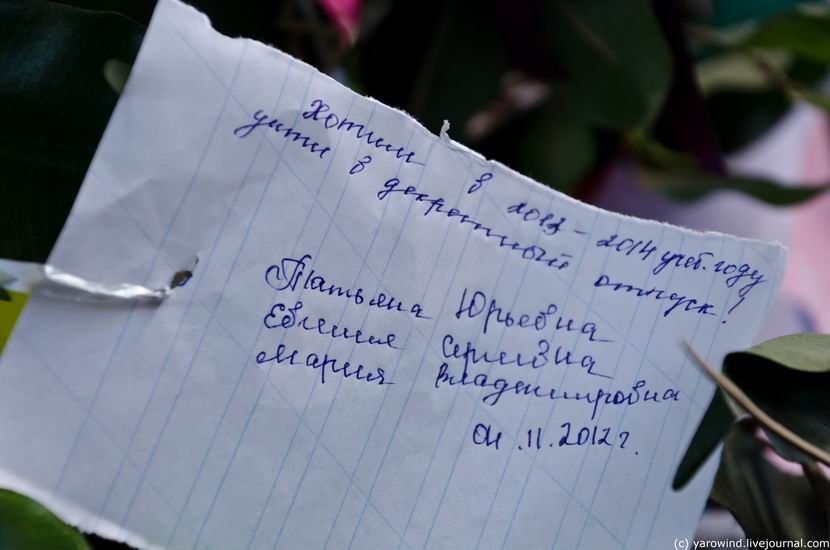 Хотим в 2013-2014 учеб. году
уйти в декретный отпуск!
Татьяна Юрьевна
Евгения Сергеевна
Мария Владимировна
04.11.2012 г.
(c) yarowind.livejournal.com